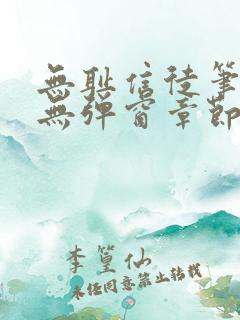 無耻信徒筆
無彈窗章節
李篁仙
未经同意禁止转载